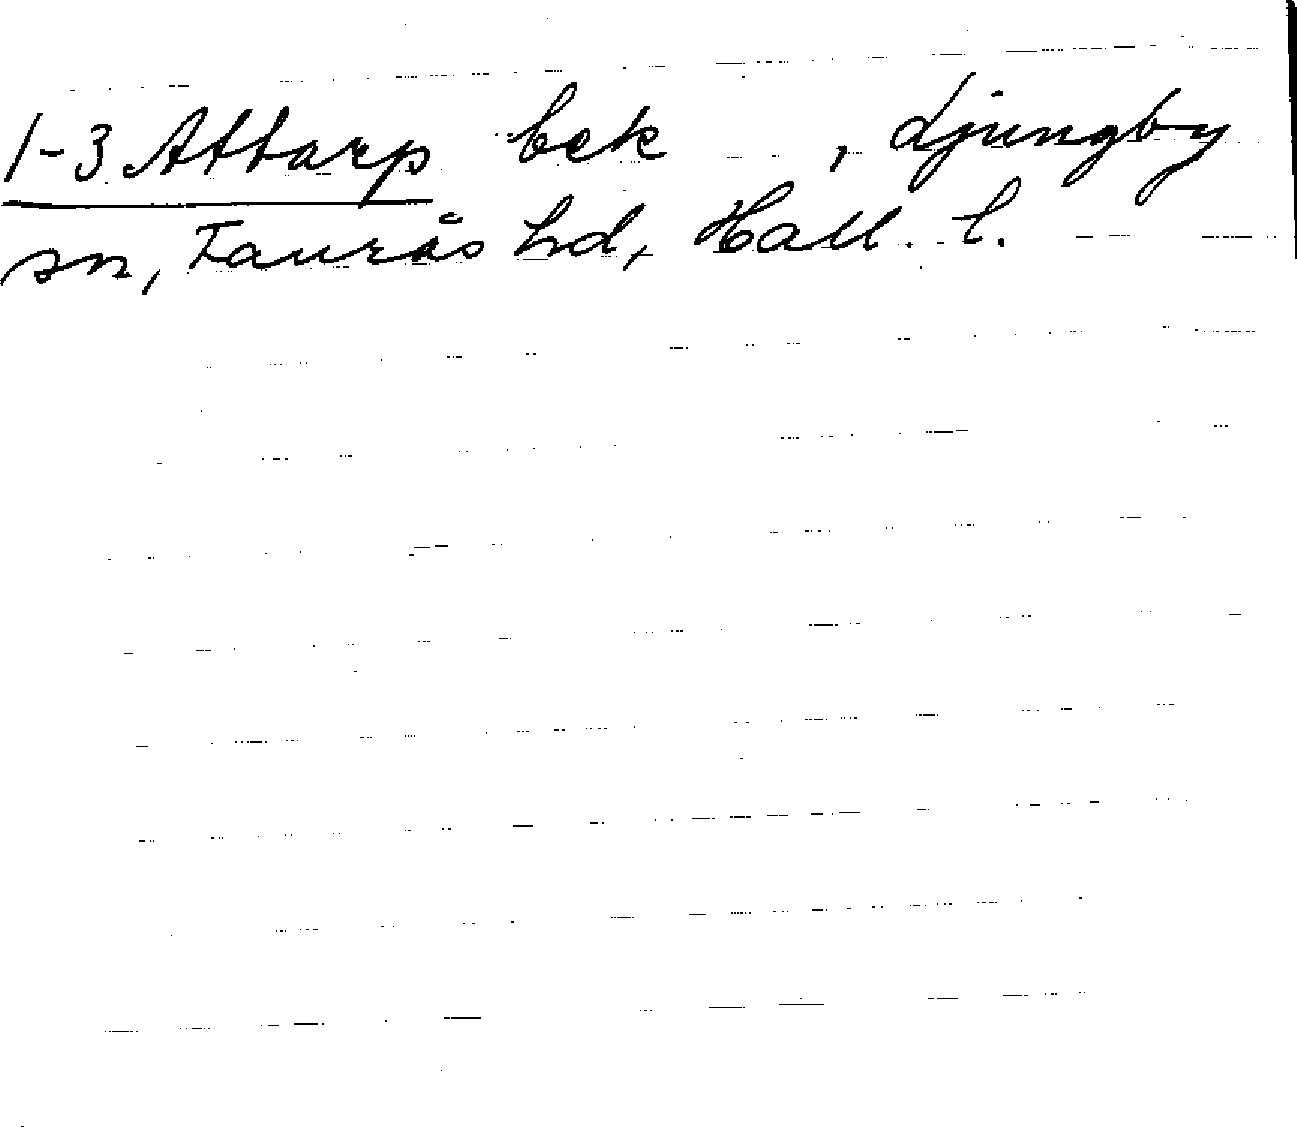 1-3 Attarp bek , Ljungby
sn, Faurås hd, Hall. l.